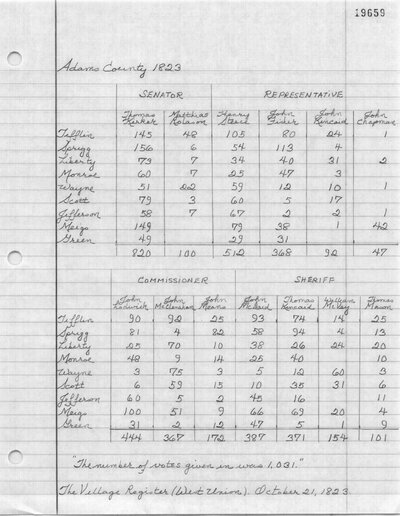 19659
Adams County 1823
SENATOR REPRESENTATIVE
Thomas Kirker Matthias Rolason Henry Steece John Fisher John Kincaid John Chapman
Tiffin 145 48 105 80 24 1
Sprigg 156 6 54 113 4
Liberty 73 7 34 40 31 2
Monroe 60 7 25 47 3
Wayne 51 22 59 12 10 1
Scott 79 3 60 5 17
Jefferson 58 7 67 2 2 1
Meigs 149 79 38 1 42
Green 49 29 31
820 100 512 368 92 47
COMMISSIONER SHERIFF
John John John Means John Thomas Kincaid William McVey Thomas Mason
Tiffin 90 92 25 93 74 14 25
Sprigg 81 4 82 58 94 4 13
Liberty 25 70 10 38 26 24 20
Monroe 48 9 14 25 40 10
Wayne 3 75 3 5 12 60 3
Scott 6 59 15 10 35 31 6
Jefferson 60 5 2 45 16 11
Meigs 100 51 9 66 69 20 4
Green 31 2 12 47 5 1 9
444 367 172 387 371 154 101
"The number of votes given in was 1,031."
The Village Register (West Union). October 21, 1823.